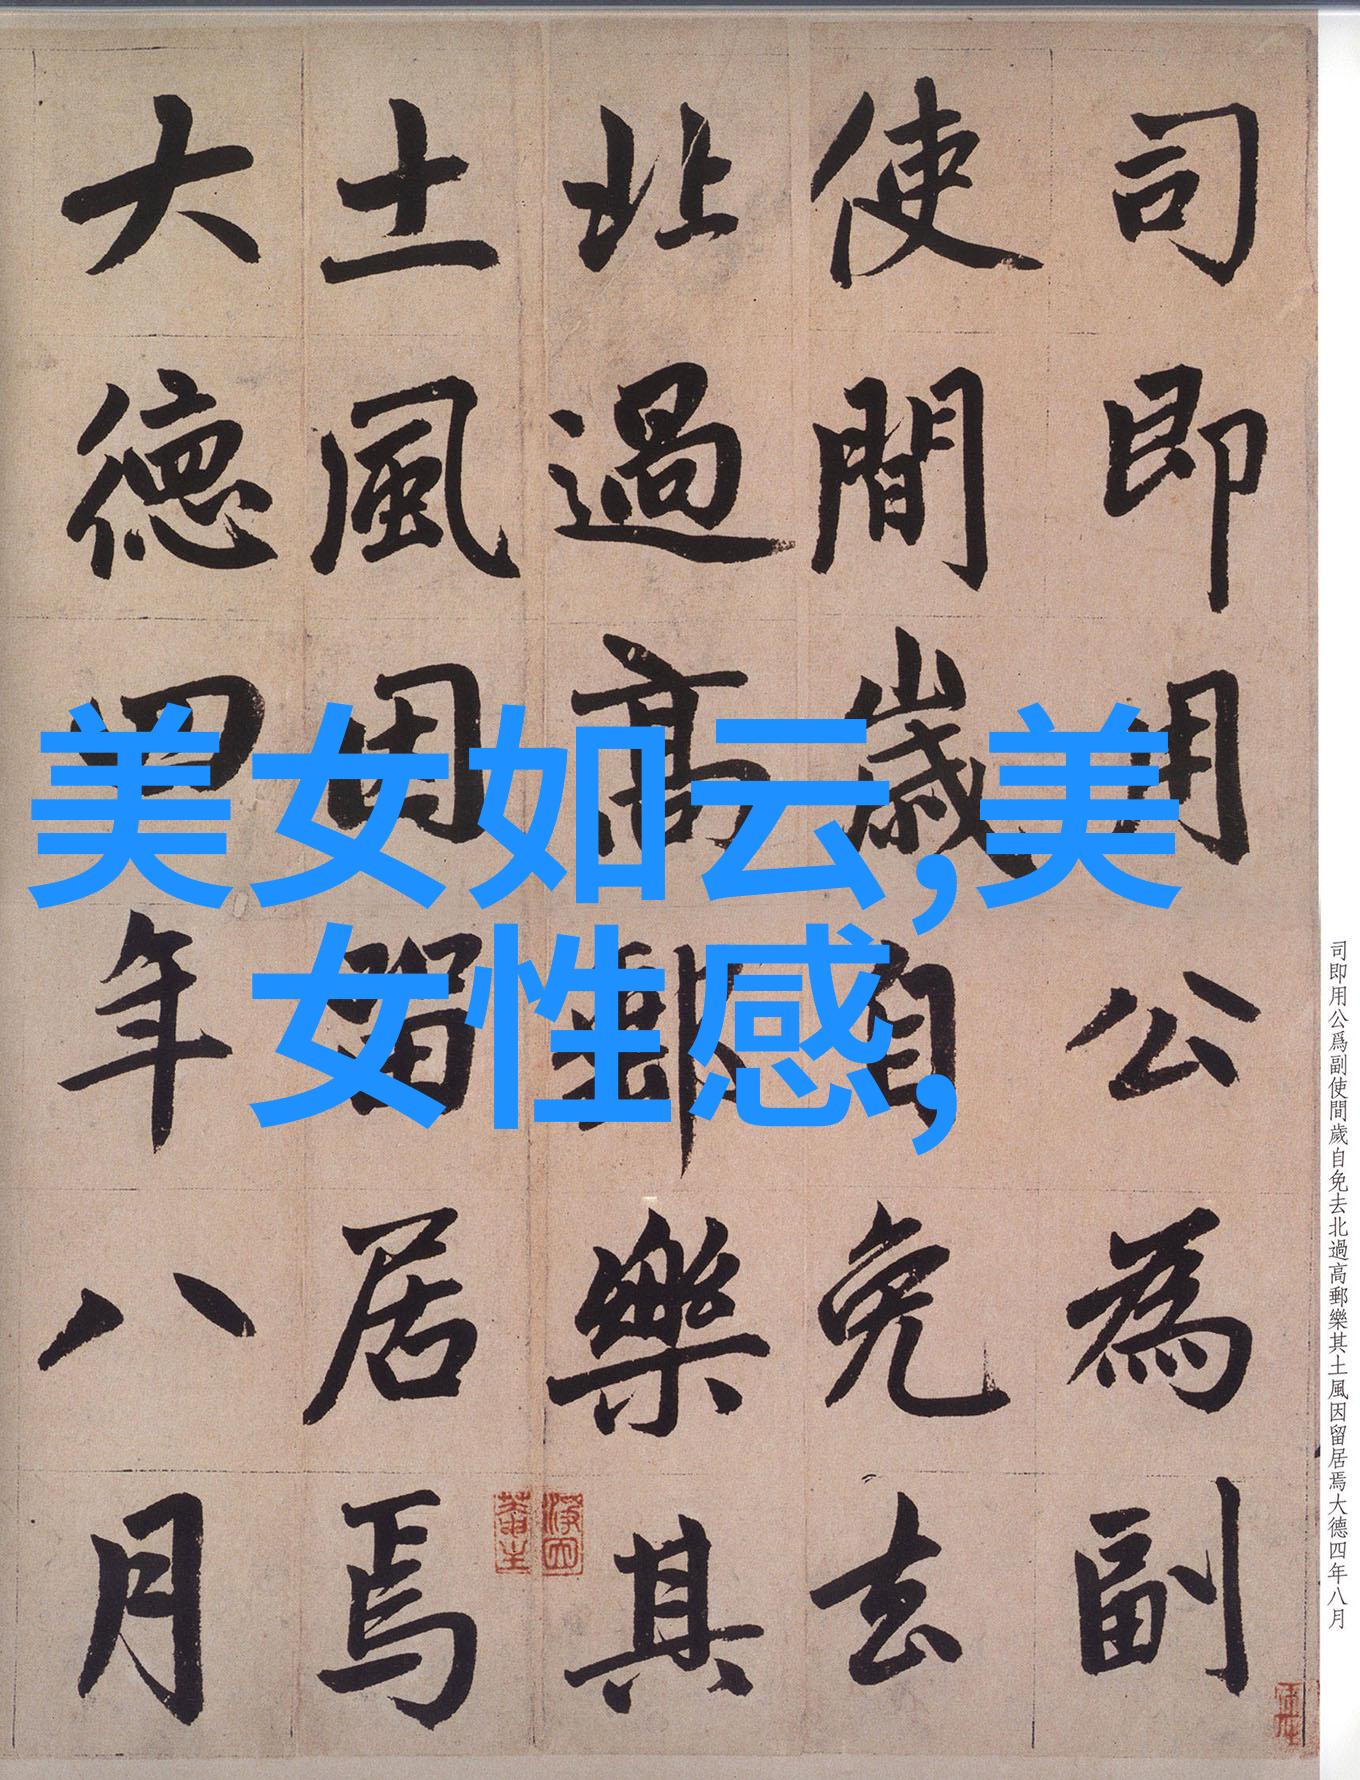 司即用公為副
使間歲自免去
北過高郵樂其
土風因留居焉
大德四年八月
美女如云,美
女性感,
司即用公爲副使間歲自免去北過高郵樂其土風因留居焉大德四年八月